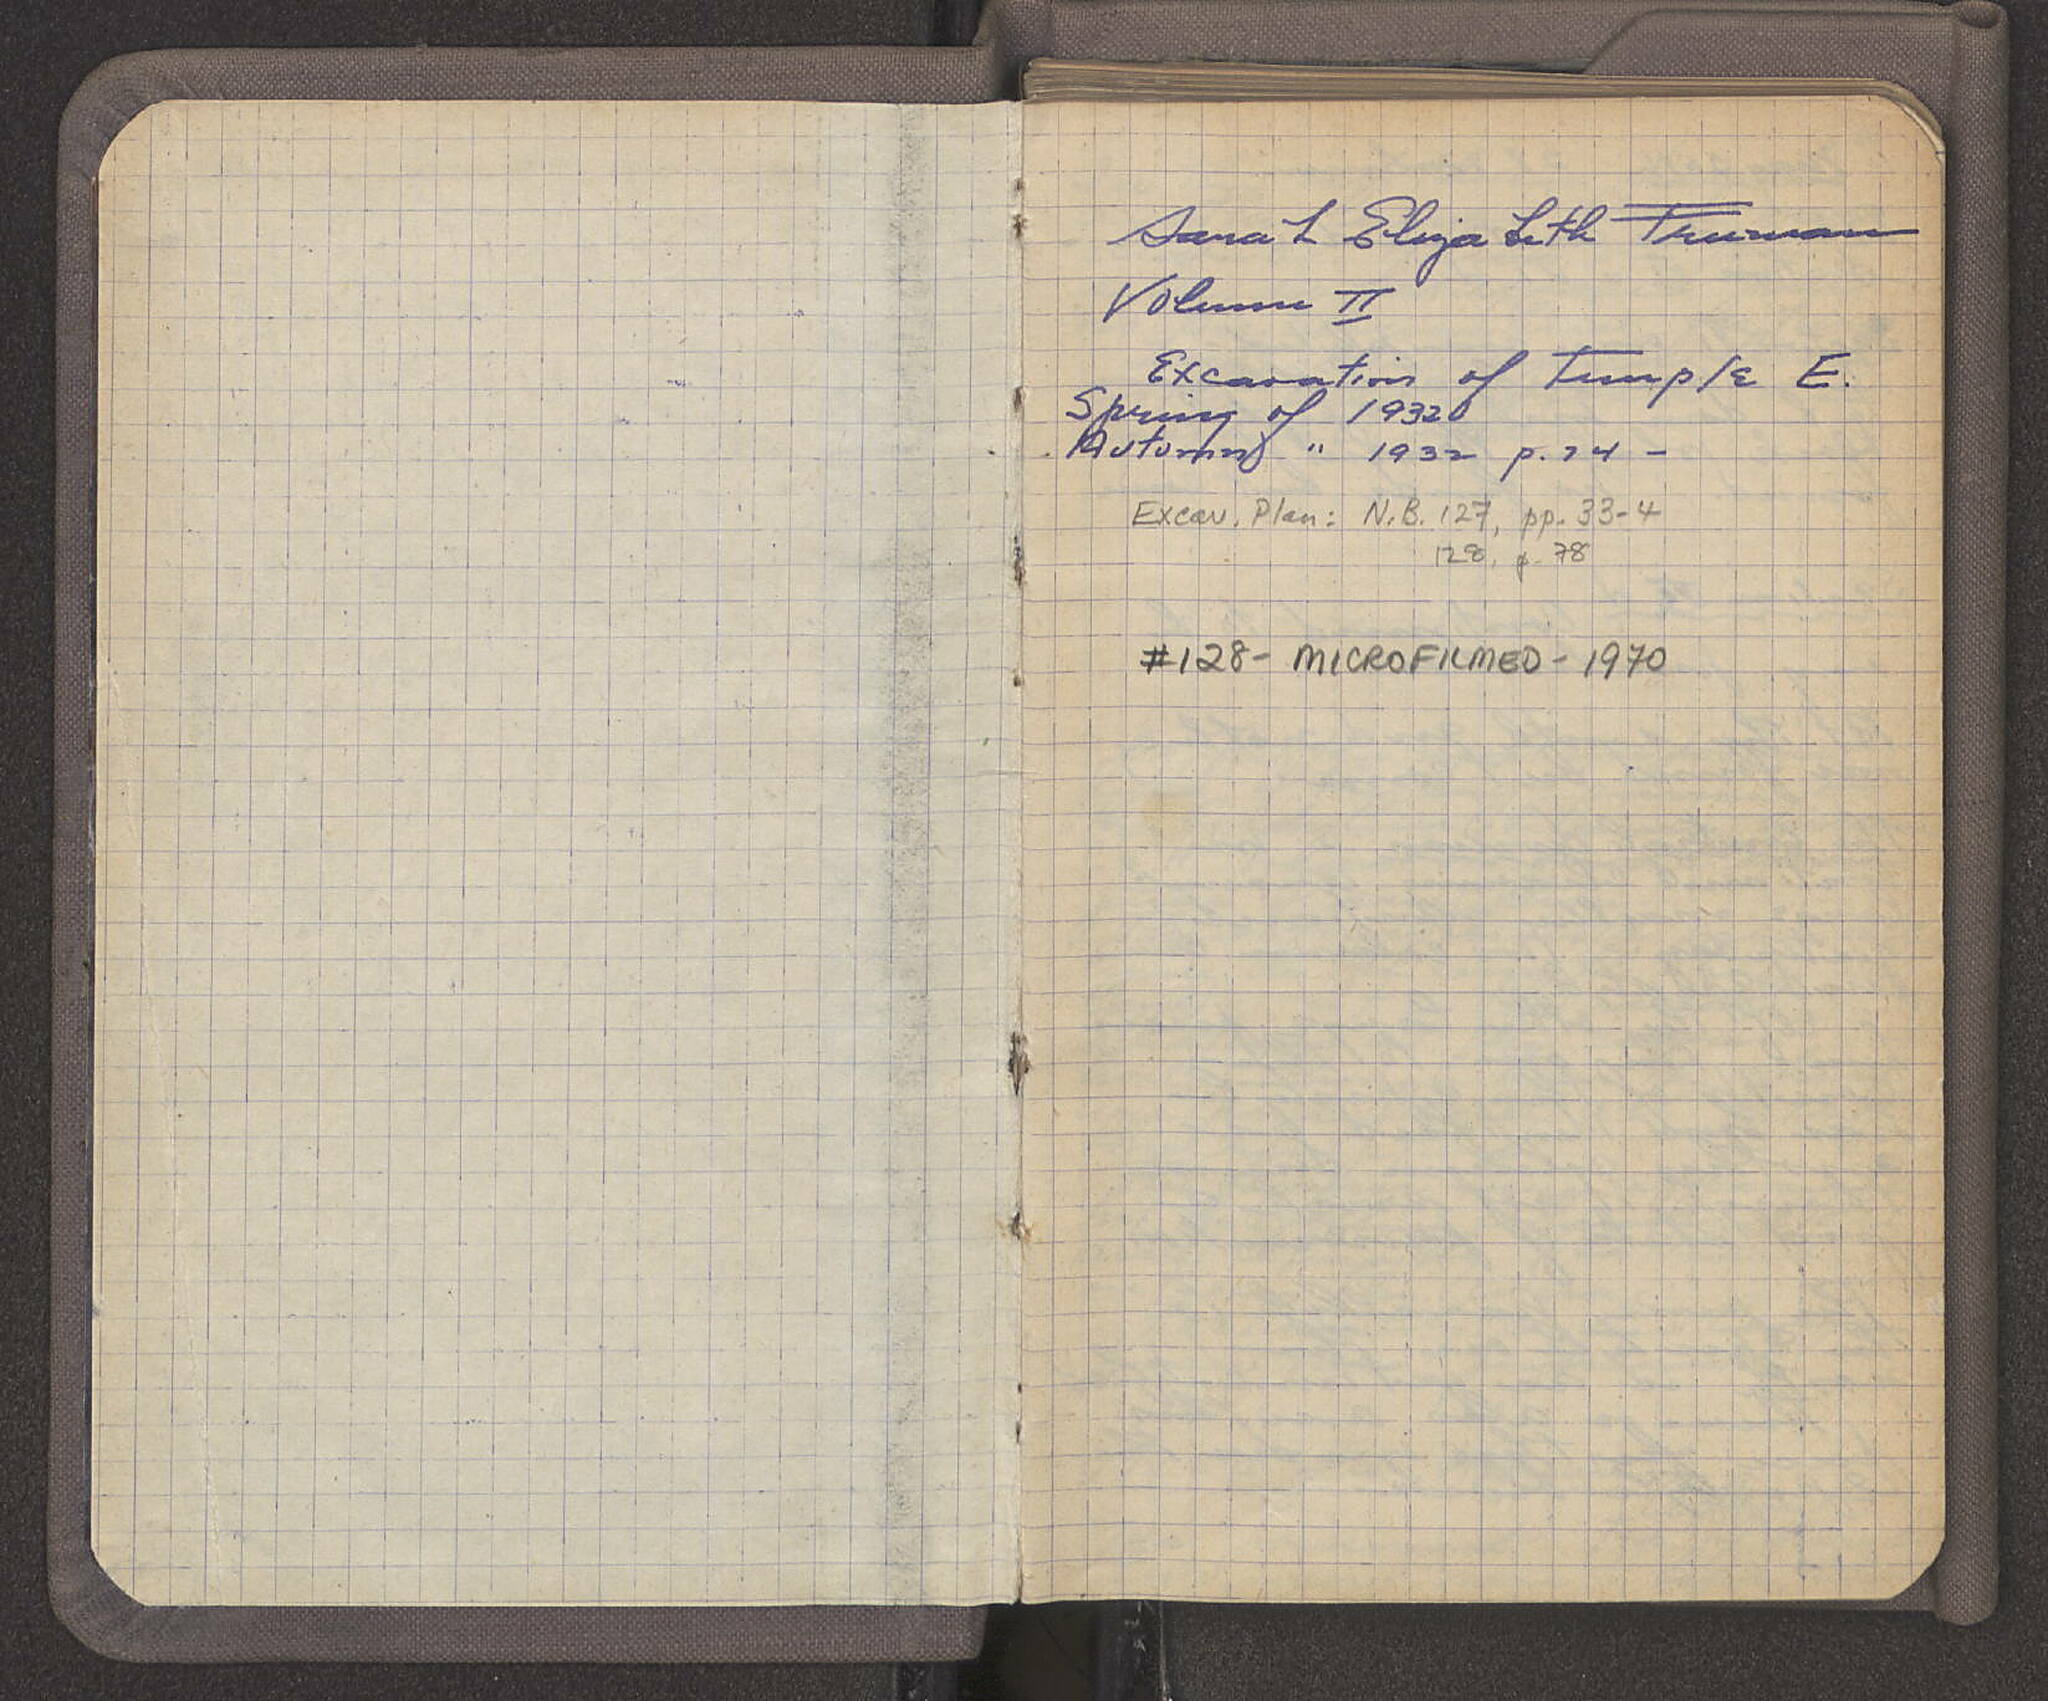 Sarah Elizabeth Freeman
Volume II
Excavation of Temple E.
Spring of 1932
Autumn " 1932 p. 74 -
Excav. Plan: N.B. 127, pp. 33-4
128, p. 78
#128- MICROFILMED - 1970